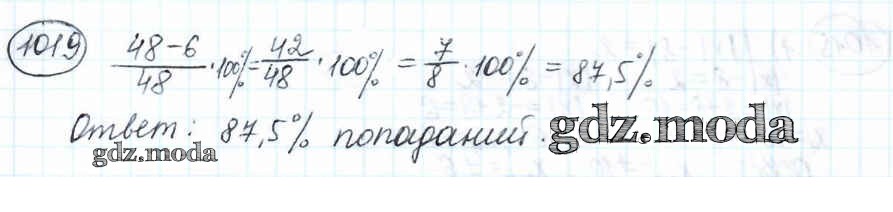 1019 (48-6)/48 · 100% = 42/48 · 100% = 7/8 · 100% = 87,5%
Ответ: 87,5% попаданий.
gdz.moda
gdz.moda